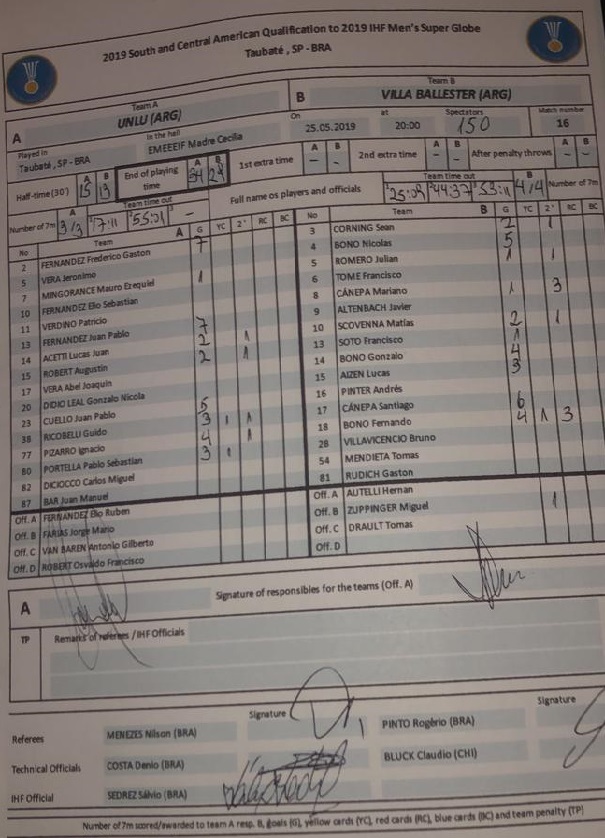 2019 South and Central American Qualification to 2019 IHF Men's Super Globe
Taubaté, SP - BRA
A Team A UNLU (ARG)
B Team B VILLA BALLESTER (ARG)
Played in Taubaté, SP - BRA
In the hall EMEEEIF Madre Cecilia
On 25.05.2019
at 20:00
Spectators 150
Match number 16
Half-time (30') A 15 B 13
End of playing time A 34 B 28
1st extra time A - B -
2nd extra time A - B -
After penalty throws A - B -
Number of 7m A 3/3
Team time out 17:11 55:01 -
Full name os players and officials
Team time out 44:37 53:11
B 4/4 Number of 7m
No Team A G YC 2' RC BC
2 FERNANDEZ Frederico Gaston
5 VERA Jeronimo
7 MINGORANCE Mauro Ezequiel
10 FERNANDEZ Elio Sebastian
11 VERDINO Patricio
13 FERNANDEZ Juan Pablo
14 ACETTI Lucas Juan
15 ROBERT Augustin
17 VERA Abel Joaquin
20 DIDIO LEAL Gonzalo Nicola
23 CUELLO Juan Pablo
38 RICOBELU Guido
77 PIZARRO Ignacio
80 PORTELLA Pablo Sebastian
82 DICIOCCO Carlos Miguel
87 BAR Juan Manuel
Off. A FERNANDEZ Elio Ruben
Off. B FARIAS Jorge Mario
Off. C VAN BAREN Antonio Gilberto
Off. D ROBERT Osvaldo Francisco
No Team B G YC 2' RC BC
3 CORNING Sean
4 BONO Nicolas
5 ROMERO Julian
6 TOME Francisco
8 CÁNEPA Mariano
9 ALTENBACH Javier
10 SCOVENNA Matías
13 SOTO Francisco
14 BONO Gonzalo
15 AIZEN Lucas
16 PINTER Andrés
17 CÁNEPA Santiago
18 BONO Fernando
28 VILLAVICENCIO Bruno
54 MENDIETA Tomas
81 RUDICH Gaston
Off. A AUTELLI Hernan
Off. B ZUPPINGER Miguel
Off. C DRAULT Tomas
Off. D
A Signature of responsibles for the teams (Off. A)
TP Remarks of referees / IHF Officials
Signature
Signature
Referees MENEZES Nilson (BRA) PINTO Rogério (BRA)
Technical Officials COSTA Denio (BRA) BLUCK Claudio (CHI)
IHF Official SEDREZ Sálvio (BRA)
Number of 7m scored/awarded to team A resp. B, goals (G), yellow cards (YC), red cards (RC), blue cards (BC) and team penalty (TP)